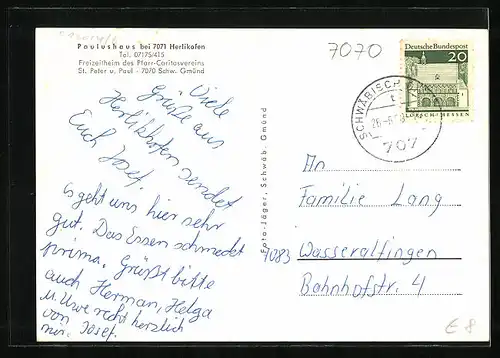 Paulushaus bei 7071 Herlikofen
Tel. 07175/415
Freizeitheim des Pfarr-Caritasvereins
St. Peter u. Paul - 7070 Schw. Gmünd
7070
Deutsche Bundespost
20
LORSCH/HESSEN
SCHWÄBISCH
707
Viele
Grüße aus
Herlikhofen sendet
Euch Josef.
Es geht uns hier sehr
gut. Das Essen schmeckt
prima. Grüßt bitte
auch Herman, Helga
u. Uwe recht herzlich
von
mir. Josef.
Foto-Jäger, Schwäb. Gmünd
An
Familie Lang
7083 Wasseralfingen
Bahnhofstr. 4
€8